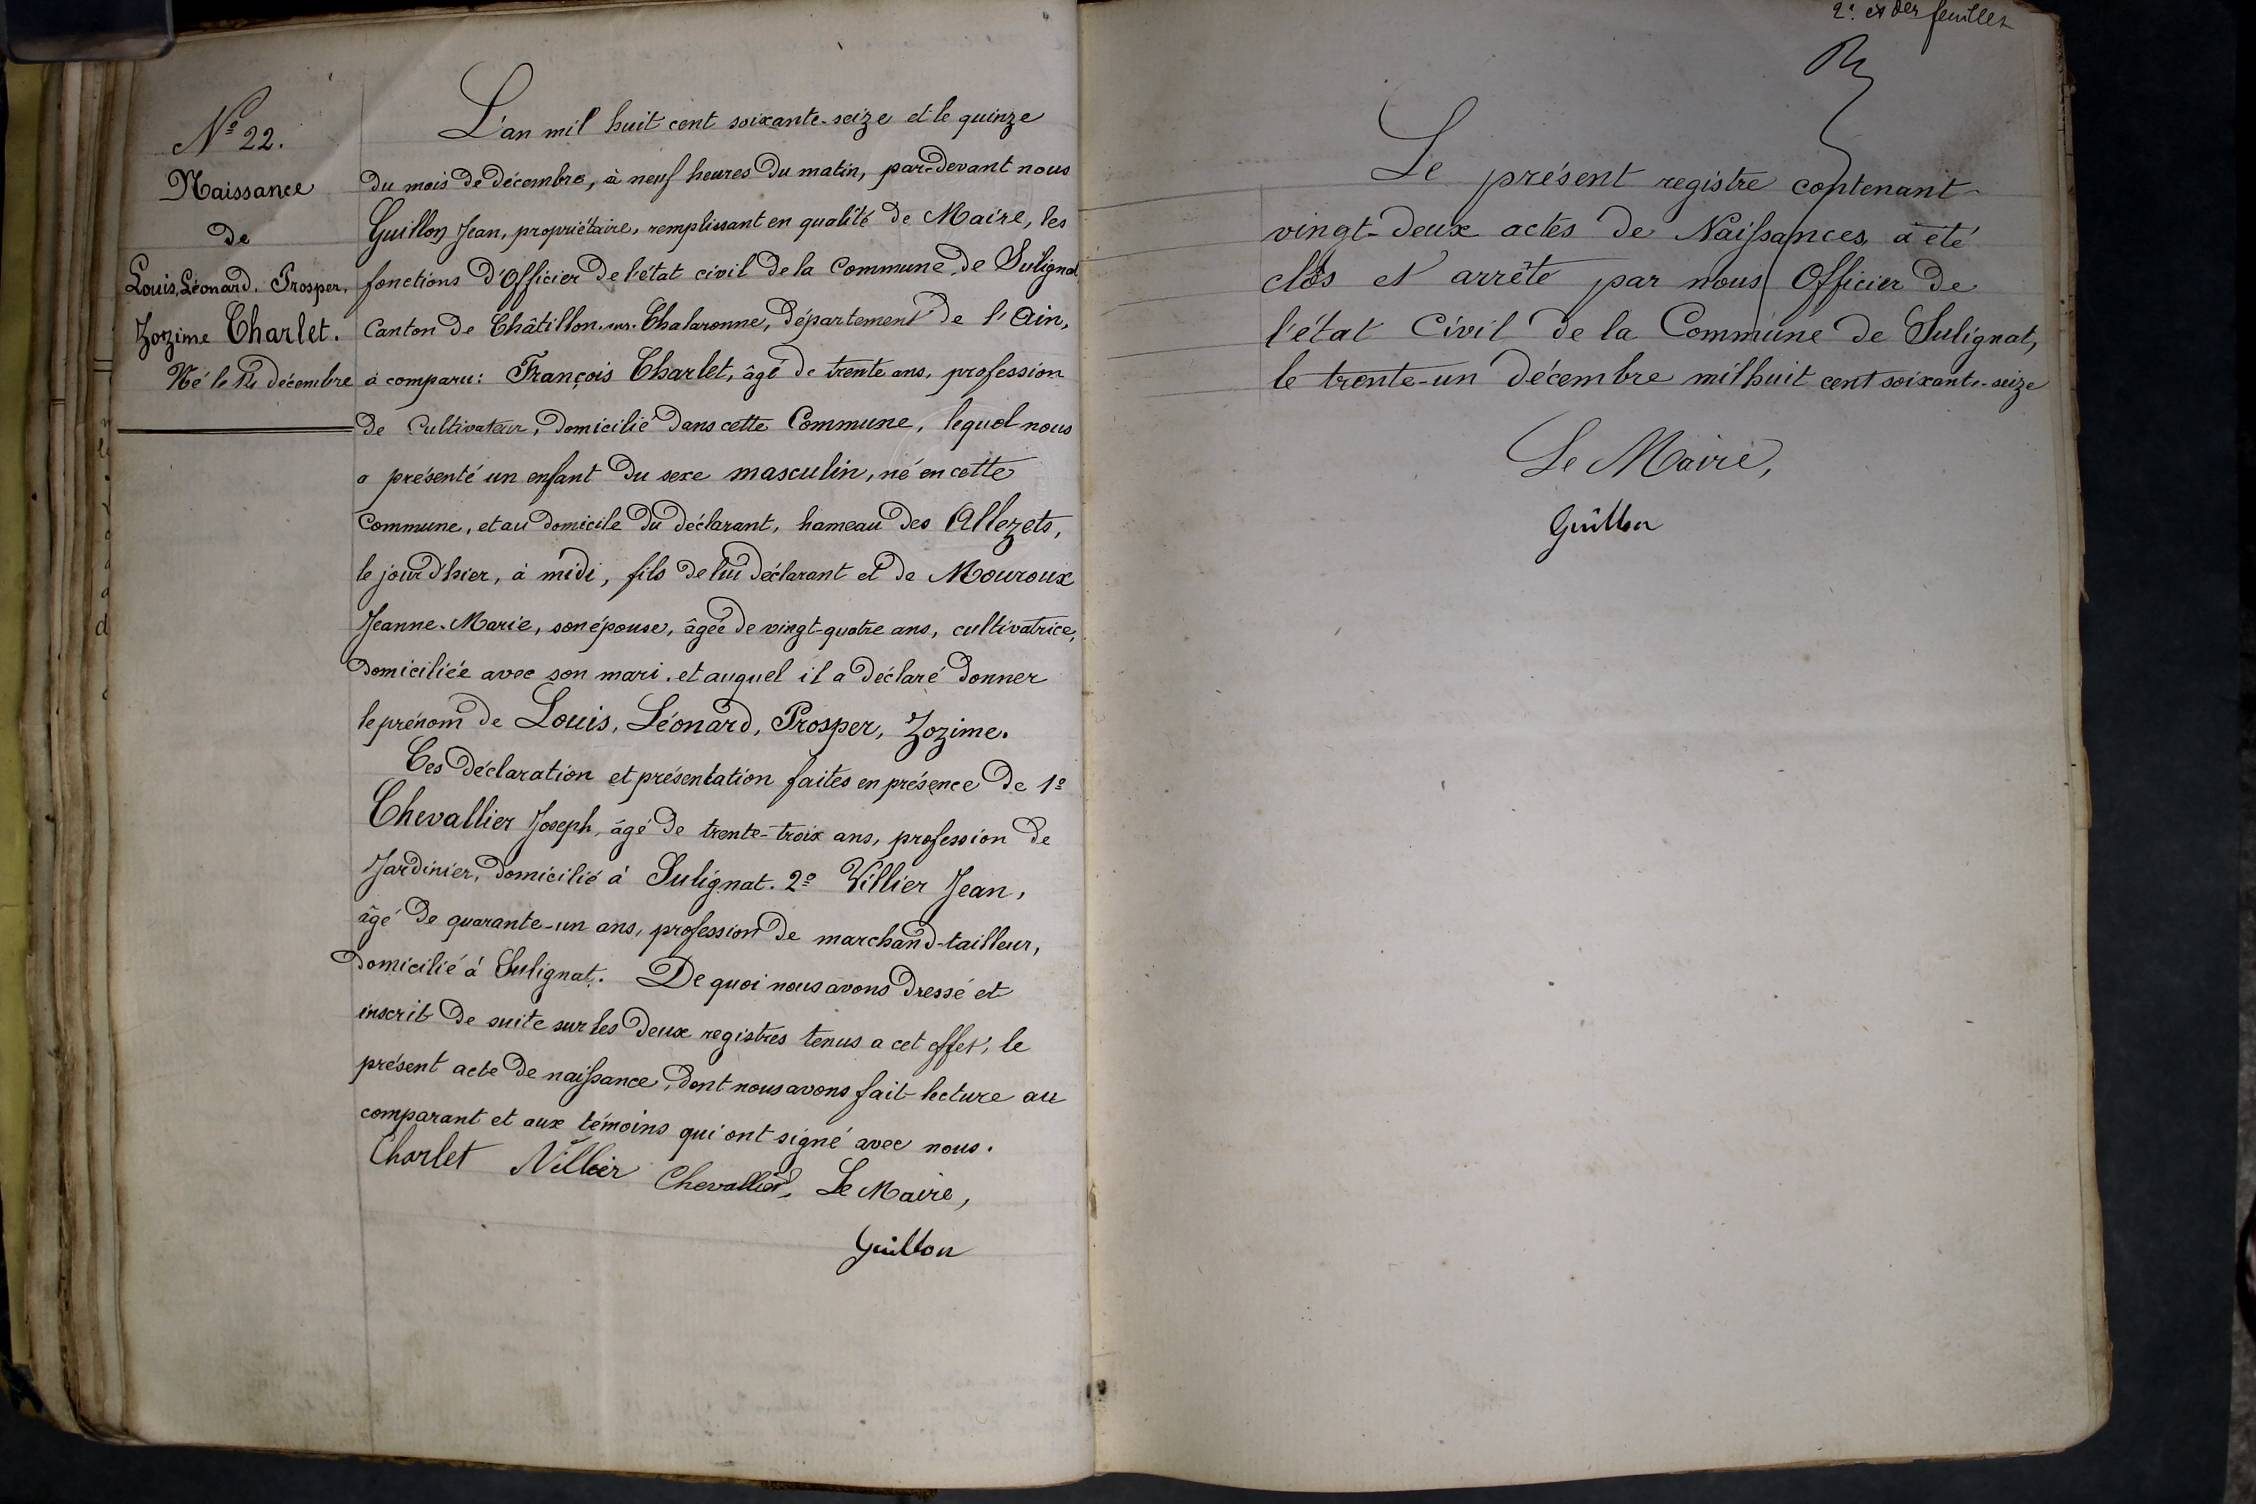 Nº 22.
Naissance
de
Louis, Léonard, Prosper,
Zozime Charlet.
Né le 14 décembre
L'an mil huit cent soixante-seize et le quinze
du mois de décembre, à neuf heures du matin, par-devant nous
Guillon Jean, propriétaire, remplissant en qualité de Maire, les
fonctions d'Officier de l'état civil de la Commune de Sulignat
Canton de Châtillon-sur-Chalaronne, département de l'Ain,
a comparu: François Charlet, âgé de trente ans, profession
de Cultivateur, domicilié dans cette Commune, lequel nous
a présenté un enfant du sexe masculin, né en cette
Commune, et au domicile du déclarant, hameau des Allezets,
le jour d'hier, à midi, fils de lui déclarant et de Mouroux
Jeanne-Marie, son épouse, âgée de vingt-quatre ans, cultivatrice,
domiciliée avec son mari. et auquel il a déclaré donner
le prénom de Louis, Léonard, Prosper, Zozime.
Ces déclaration et présentation faites en présence de 1º
Chevallier Joseph, âgé de trente-trois ans, profession de
Jardinier, domicilié à Sulignat. 2º Villier Jean,
âgé de quarante-un ans, profession de marchand-tailleur,
domicilié à Sulignat. De quoi nous avons dressé et
inscrit de suite sur les deux registres tenus a cet effet, le
présent acte de naissance, dont nous avons fait lecture au
comparant et aux témoins qui ont signé avec nous.
Charlet Villier Chevallier Le Maire,
Guillon
2e et der feuillet
Le présent registre contenant
vingt-deux actes de Naissances, a été
clos et arrêté par nous Officier de
l'état Civil de la Commune de Sulignat,
le trente-un décembre mil huit cent soixante-seize
Le Maire,
Guillon